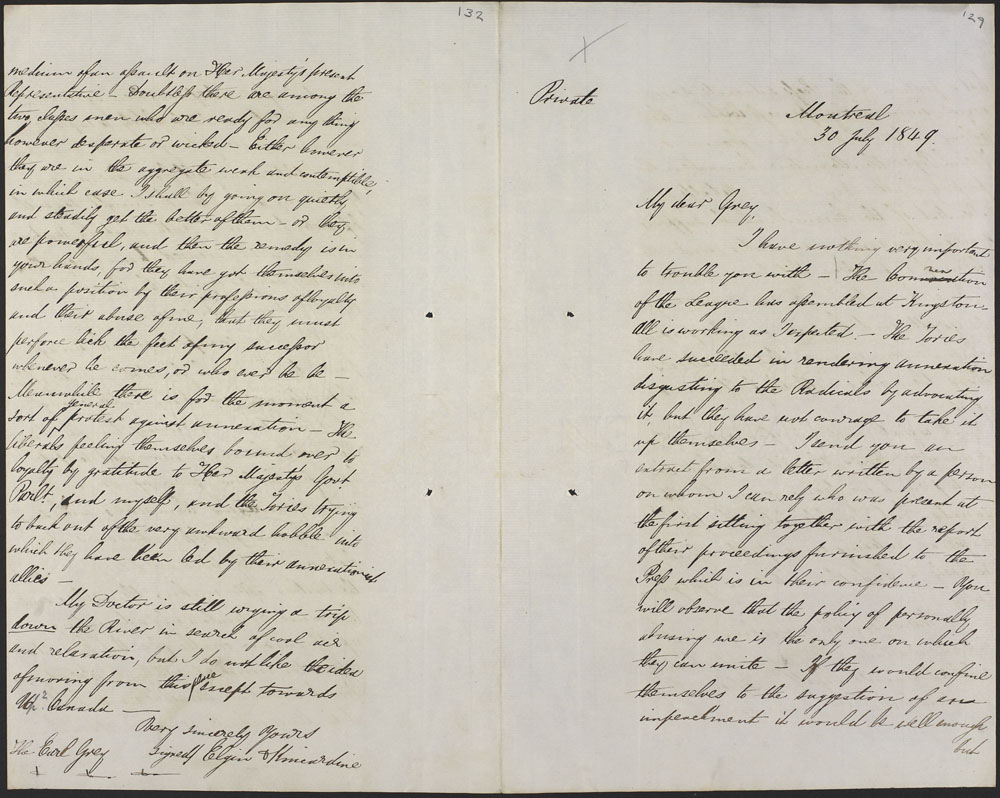 132
medium of an assault on Her Majesty's present
Representative – Doubtless there are among the
two classes men who are ready for any thing
however desperate or wicked – Either however
they are in the aggregate weak and contemptible,
in which case I shall by going on quietly
and steadily get the better of them – or they
are powerful, and then the remedy is in
your hands, for they have got themselves into
such a position by their professions of loyalty
and their abuse of me, that they must
perforce lick the feet of my successor
whenever he comes, or who ever he be –
Meanwhile there is for the moment a
sort of general protest against annexation – The
liberals feeling themselves bound over to
loyalty by gratitude to Her Majesty's Govt
Parlt, and myself, and the Tories trying
to back out of the very awkward hobble into
which they have been led by their annexationist
allies –
My Doctor is still urging a trip
down the River in search of cool air
and relaxation, but I do not like the idea
of moving from this place except towards
Upr Canada –
Very sincerely Yours
The Earl Grey signed Elgin & Kincardine
129
Private
Montreal
30 July 1849.
My dear Grey,
I have nothing very important
to trouble you with – The Convention
of the League has assembled at Kingston.
All is working as I expected – The Tories
have succeeded in rendering annexation
disgusting to the Radicals by advocating
it, but they have not courage to take it
up themselves – I send you an
extract from a letter written by a person
on whom I can rely who was present at
the first sitting together with the report
of their proceedings furnished to the
Press which is in their confidence – You
will observe that the policy of personally
abusing me is the only one on which
they can unite – If they would confine
themselves to the suggestion of an
impeachment it would be well enough
but